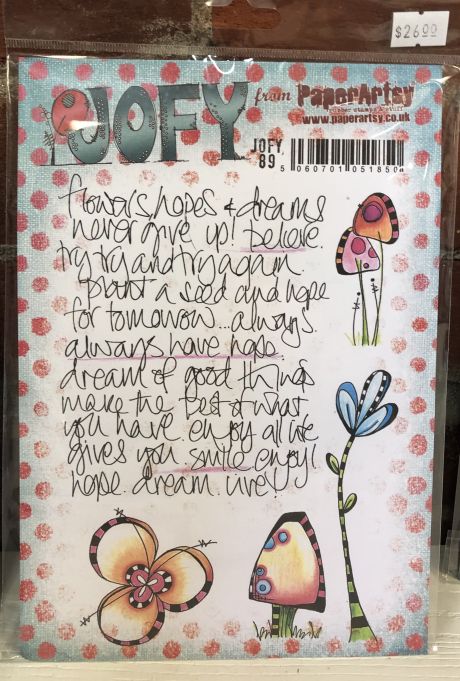 $26.00
JOFY from PaperArtsy
rubber stamps & stuff
www.paperartsy.co.uk
JOFY
89
5 060701 051850
flowers, hopes & dreams
never give up! believe.
try try and try again.
plant a seed and hope
for tomorrow... always.
always have hope.
dream of good things
make the best of what
you have. enjoy all life
gives you. smile. enjoy!
hope. dream. live!